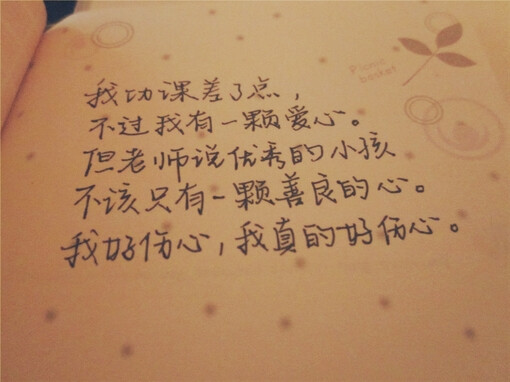 Picnic
basket
我功课差了点，
不过我有一颗爱心。
但老师说优秀的小孩
不该只有一颗善良的心。
我好伤心，我真的好伤心。